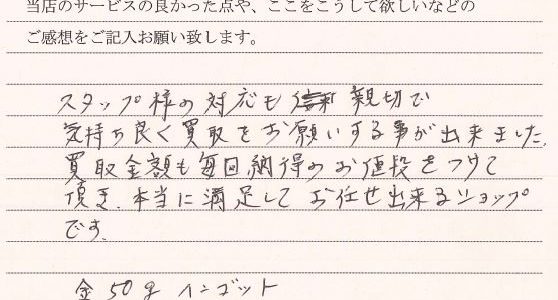 当店のサービスの良かった点や、ここをこうして欲しいなどの
ご感想をご記入お願い致します。
スタッフ様の対応も 親切で
気持ち良く買取をお願いする事が出来ました。
買取金額も毎回納得のお値段をつけて
頂き、本当に満足してお任せ出来るショップ
です。
金50gインゴット